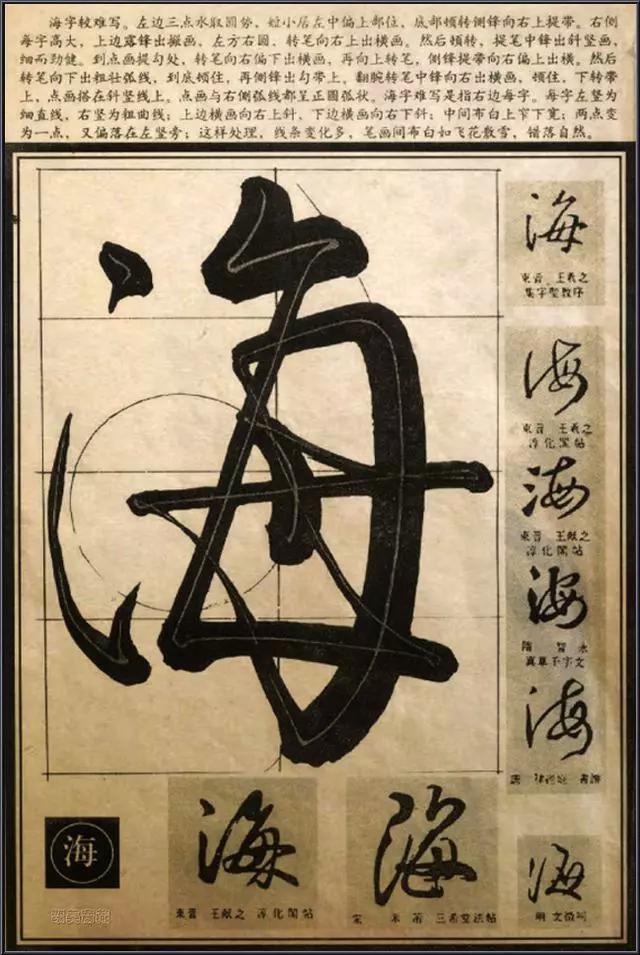 海字较难写。左边三点水取圆势，短小居左中偏上部位，底部顿转侧锋向右上提带。右侧
每字高大，上边露锋出撇画，左方右圆，转笔向右上出横画。然后顿转，提笔中锋出斜竖画，
细而劲健。到点画提勾处，转笔向右偏下出横画，再向上转笔，侧锋提带向右偏上出横。然后
转笔向下出粗壮弧线，到底顿住，再侧锋出勾带上。翻腕转笔中锋向右出横画，顿住，下转带
上，点画搭在斜竖线上。点画与右侧弧线都呈正圆弧状。海字难写是指右边每字。每字左竖为
细直线，右竖为粗曲线；上边横画向右上斜，下边横画向右下斜；中间布白上窄下宽；两点变
为一点，又偏落在左竖旁；这样处理，线条变化多，笔画间布白如飞花散雪，错落自然。
海
海
東晋 王羲之
集字聖教序
海
東晋 王羲之
淳化閣帖
海
東晋 王献之
淳化閣帖
海
隋 智永
真草千字文
海
唐 孫過庭 書譜
海
東晋 王献之 淳化閣帖
海
宋 米芾 三希堂法帖
海
明 文徵明
海